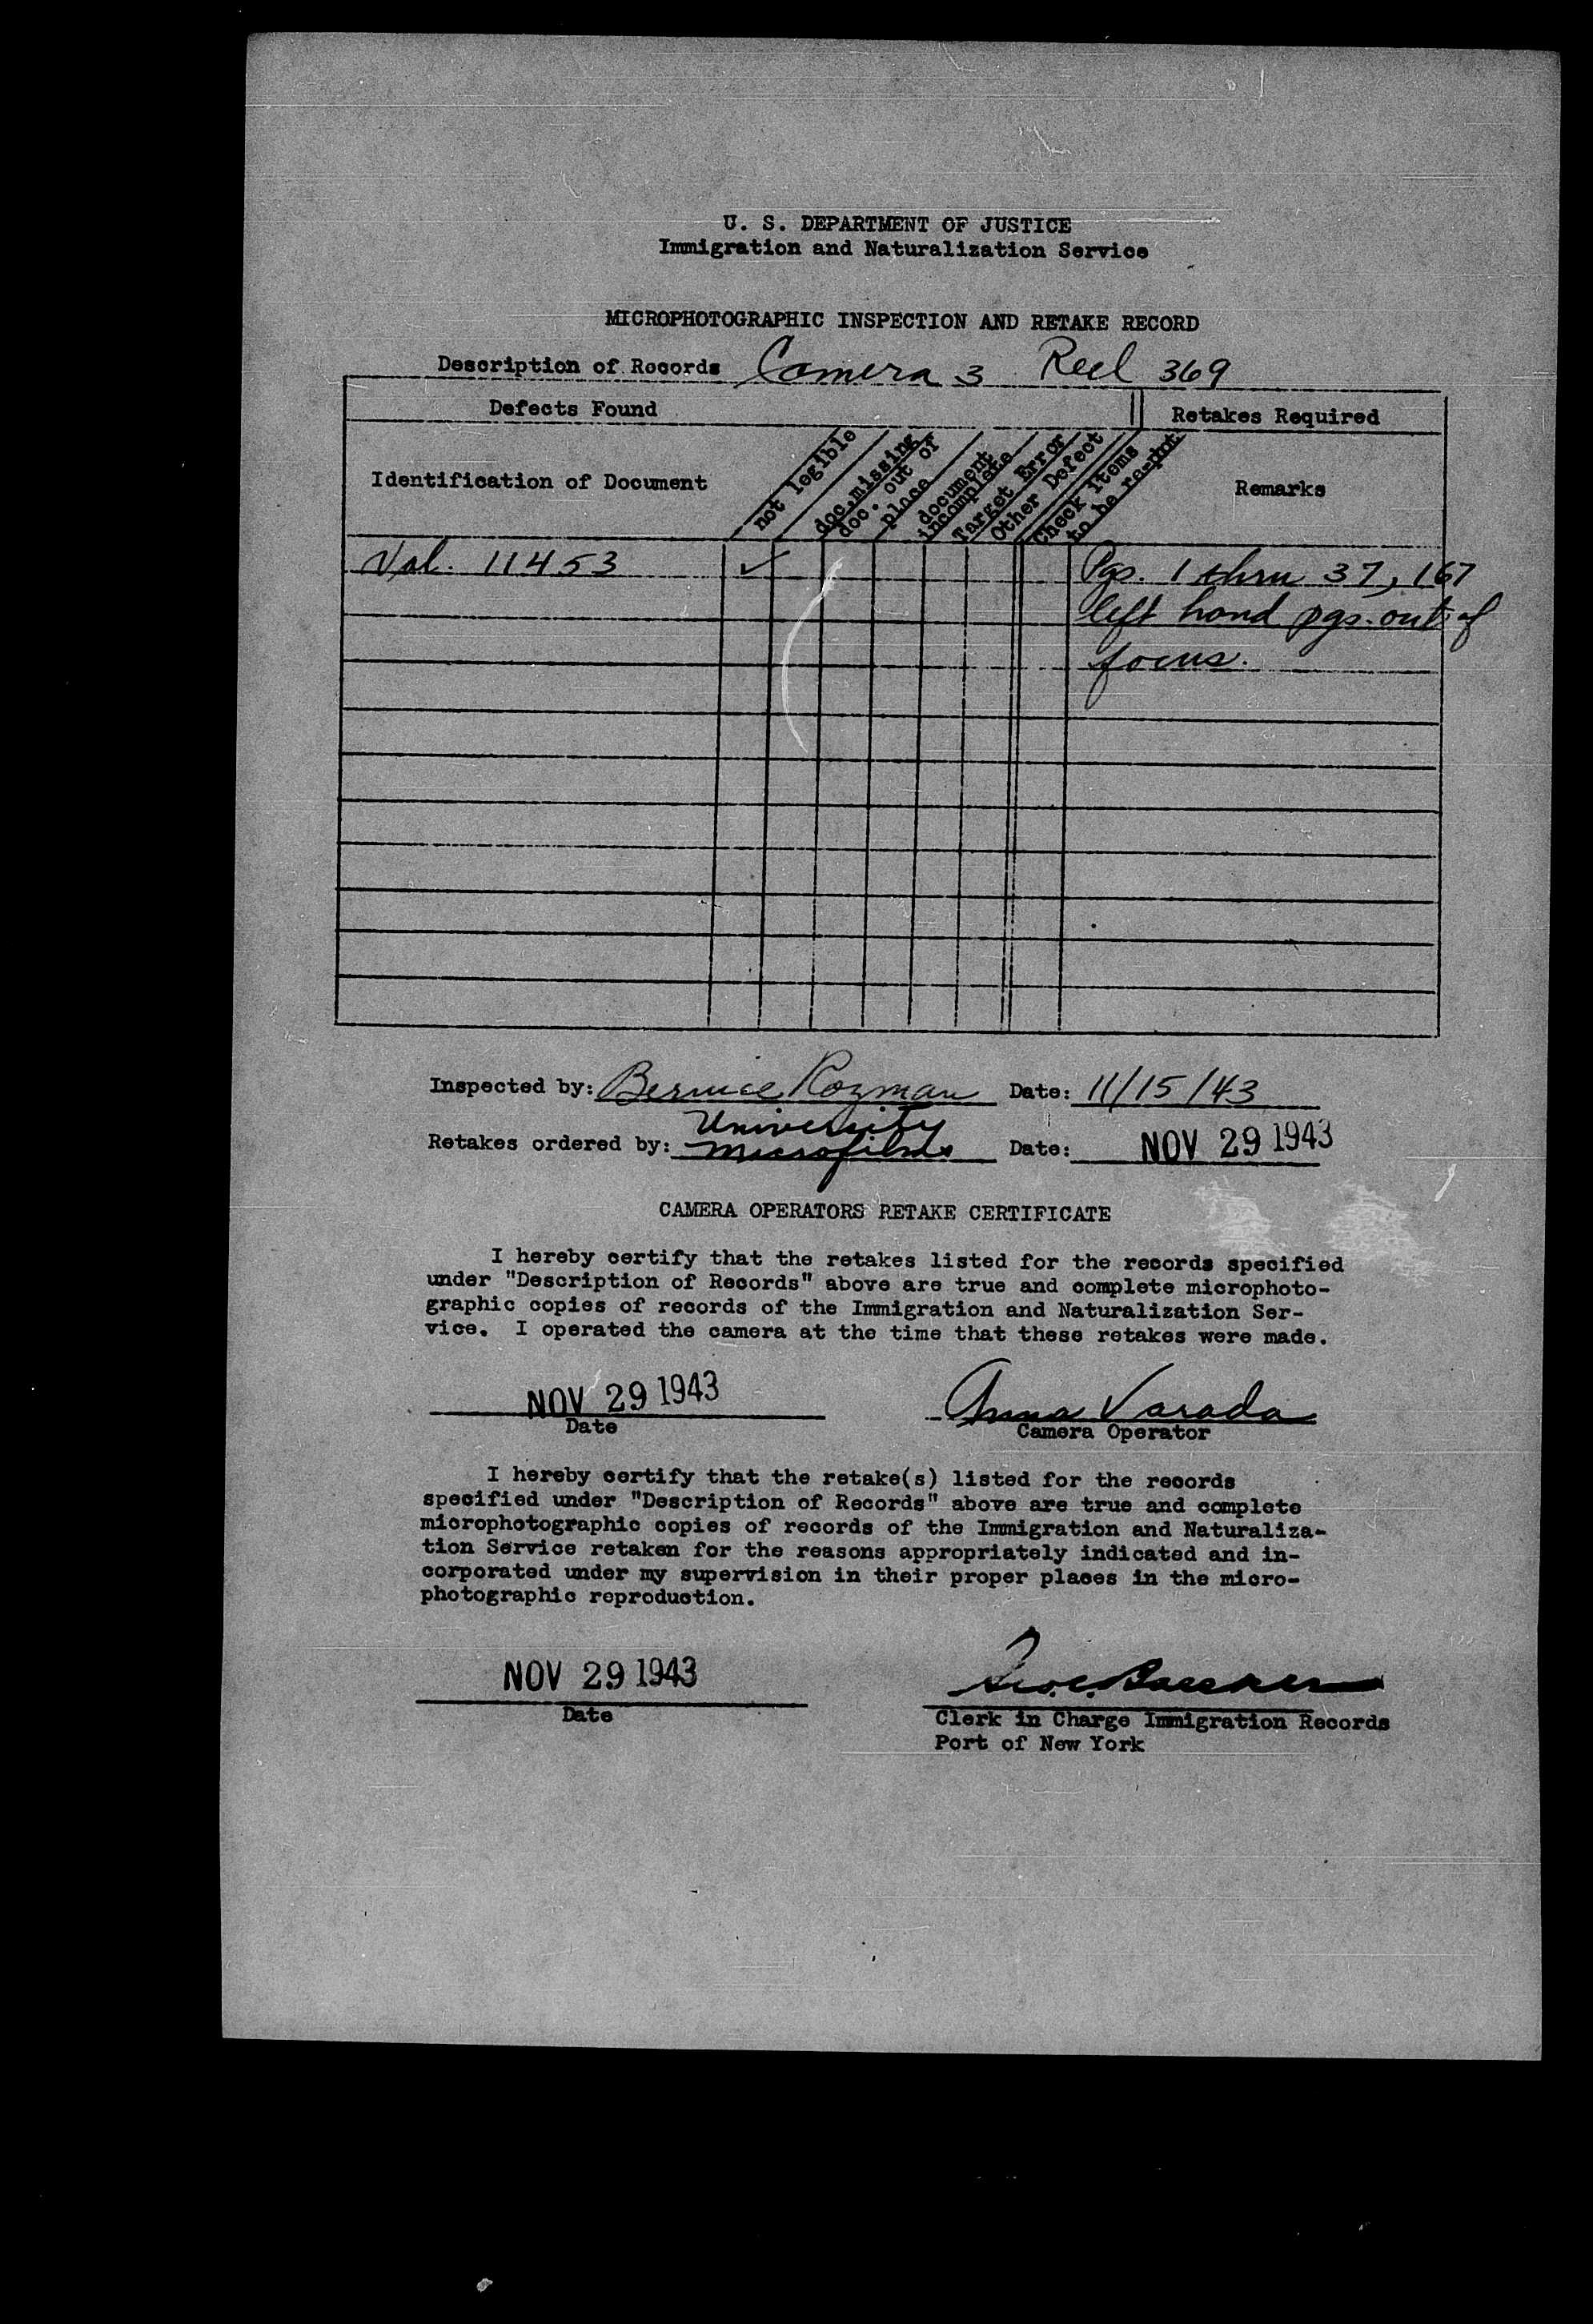 U. S. DEPARTMENT OF JUSTICE
Immigration and Naturalization Service
MICROPHOTOGRAPHIC INSPECTION AND RETAKE RECORD
Description of Records Camera 3 Reel 369
Defects Found
Retakes Required
Identification of Document
not legible
doc. missing
doc. out of
place
document
incomplete
Target Error
Other Defect
Check Items
to be re-pht
Remarks
Vol. 11453 ✓ Pgs. 1 thru 37, 167
left hand pgs. out of
focus.
Inspected by: Bernice Rozman Date: 11/15/43
University
Retakes ordered by: Microfilms Date: NOV 29 1943
CAMERA OPERATORS RETAKE CERTIFICATE
I hereby certify that the retakes listed for the records specified
under "Description of Records" above are true and complete microphoto-
graphic copies of records of the Immigration and Naturalization Ser-
vice. I operated the camera at the time that these retakes were made.
NOV 29 1943 Anna Varada
Date
Camera Operator
I hereby certify that the retake(s) listed for the records
specified under "Description of Records" above are true and complete
microphotographic copies of records of the Immigration and Naturaliza-
tion Service retaken for the reasons appropriately indicated and in-
corporated under my supervision in their proper places in the micro-
photographic reproduction.
NOV 29 1943
Date
Clerk in Charge Immigration Records
Port of New York